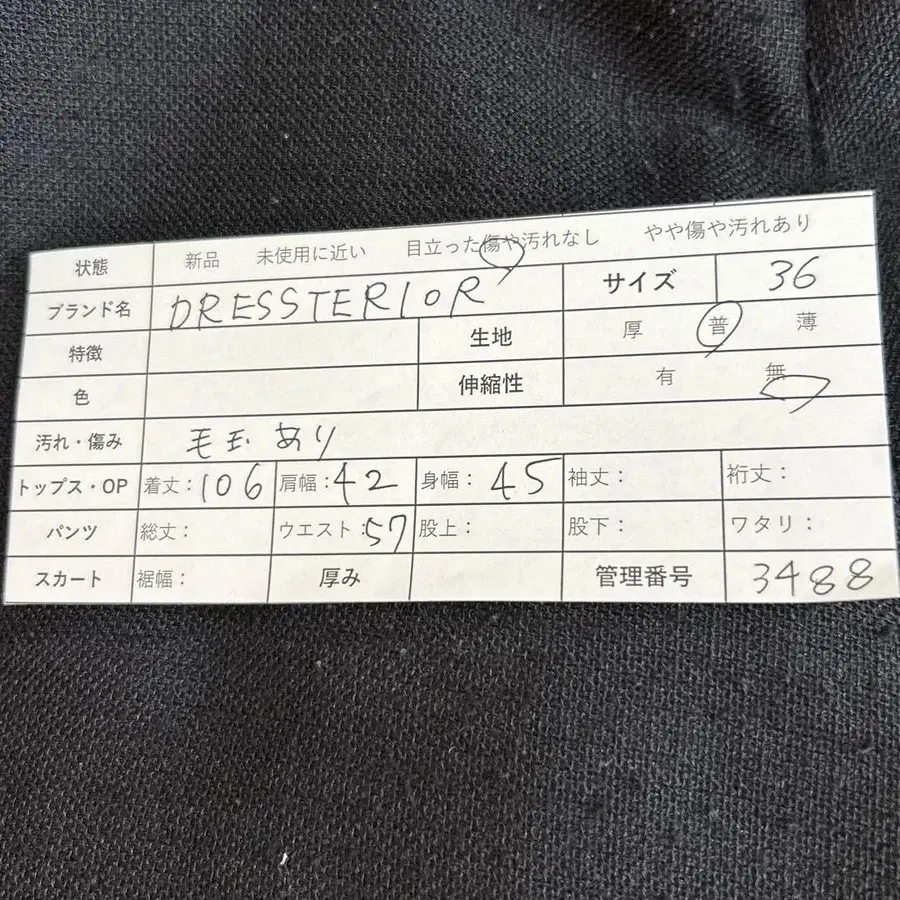 状態 新品 未使用に近い 目立った傷や汚れなし やや傷や汚れあり
ブランド名 DRESSTERIOR サイズ 36
特徴 生地 厚 普 薄
色 伸縮性 有 無
汚れ・傷み 毛玉あり
トップス・OP 着丈：106 肩幅：42 身幅：45 袖丈： 裄丈：
パンツ 総丈： ウエスト：57 股上： 股下： ワタリ：
スカート 裾幅： 厚み 管理番号 3488